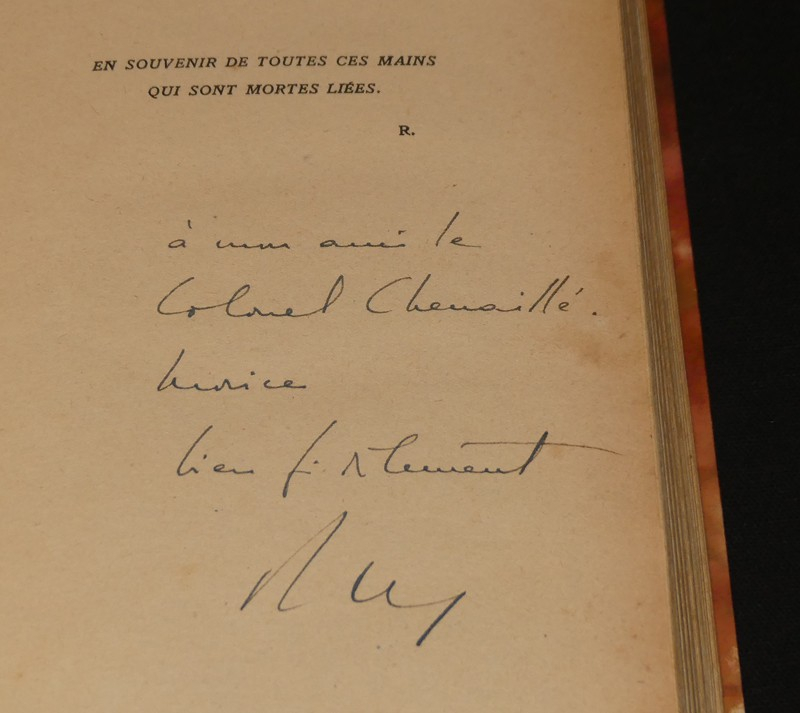 EN SOUVENIR DE TOUTES CES MAINS
QUI SONT MORTES LIÉES.
R.
à mon ami le
Colonel Chenaillé.
bien fidèlement
Rémy